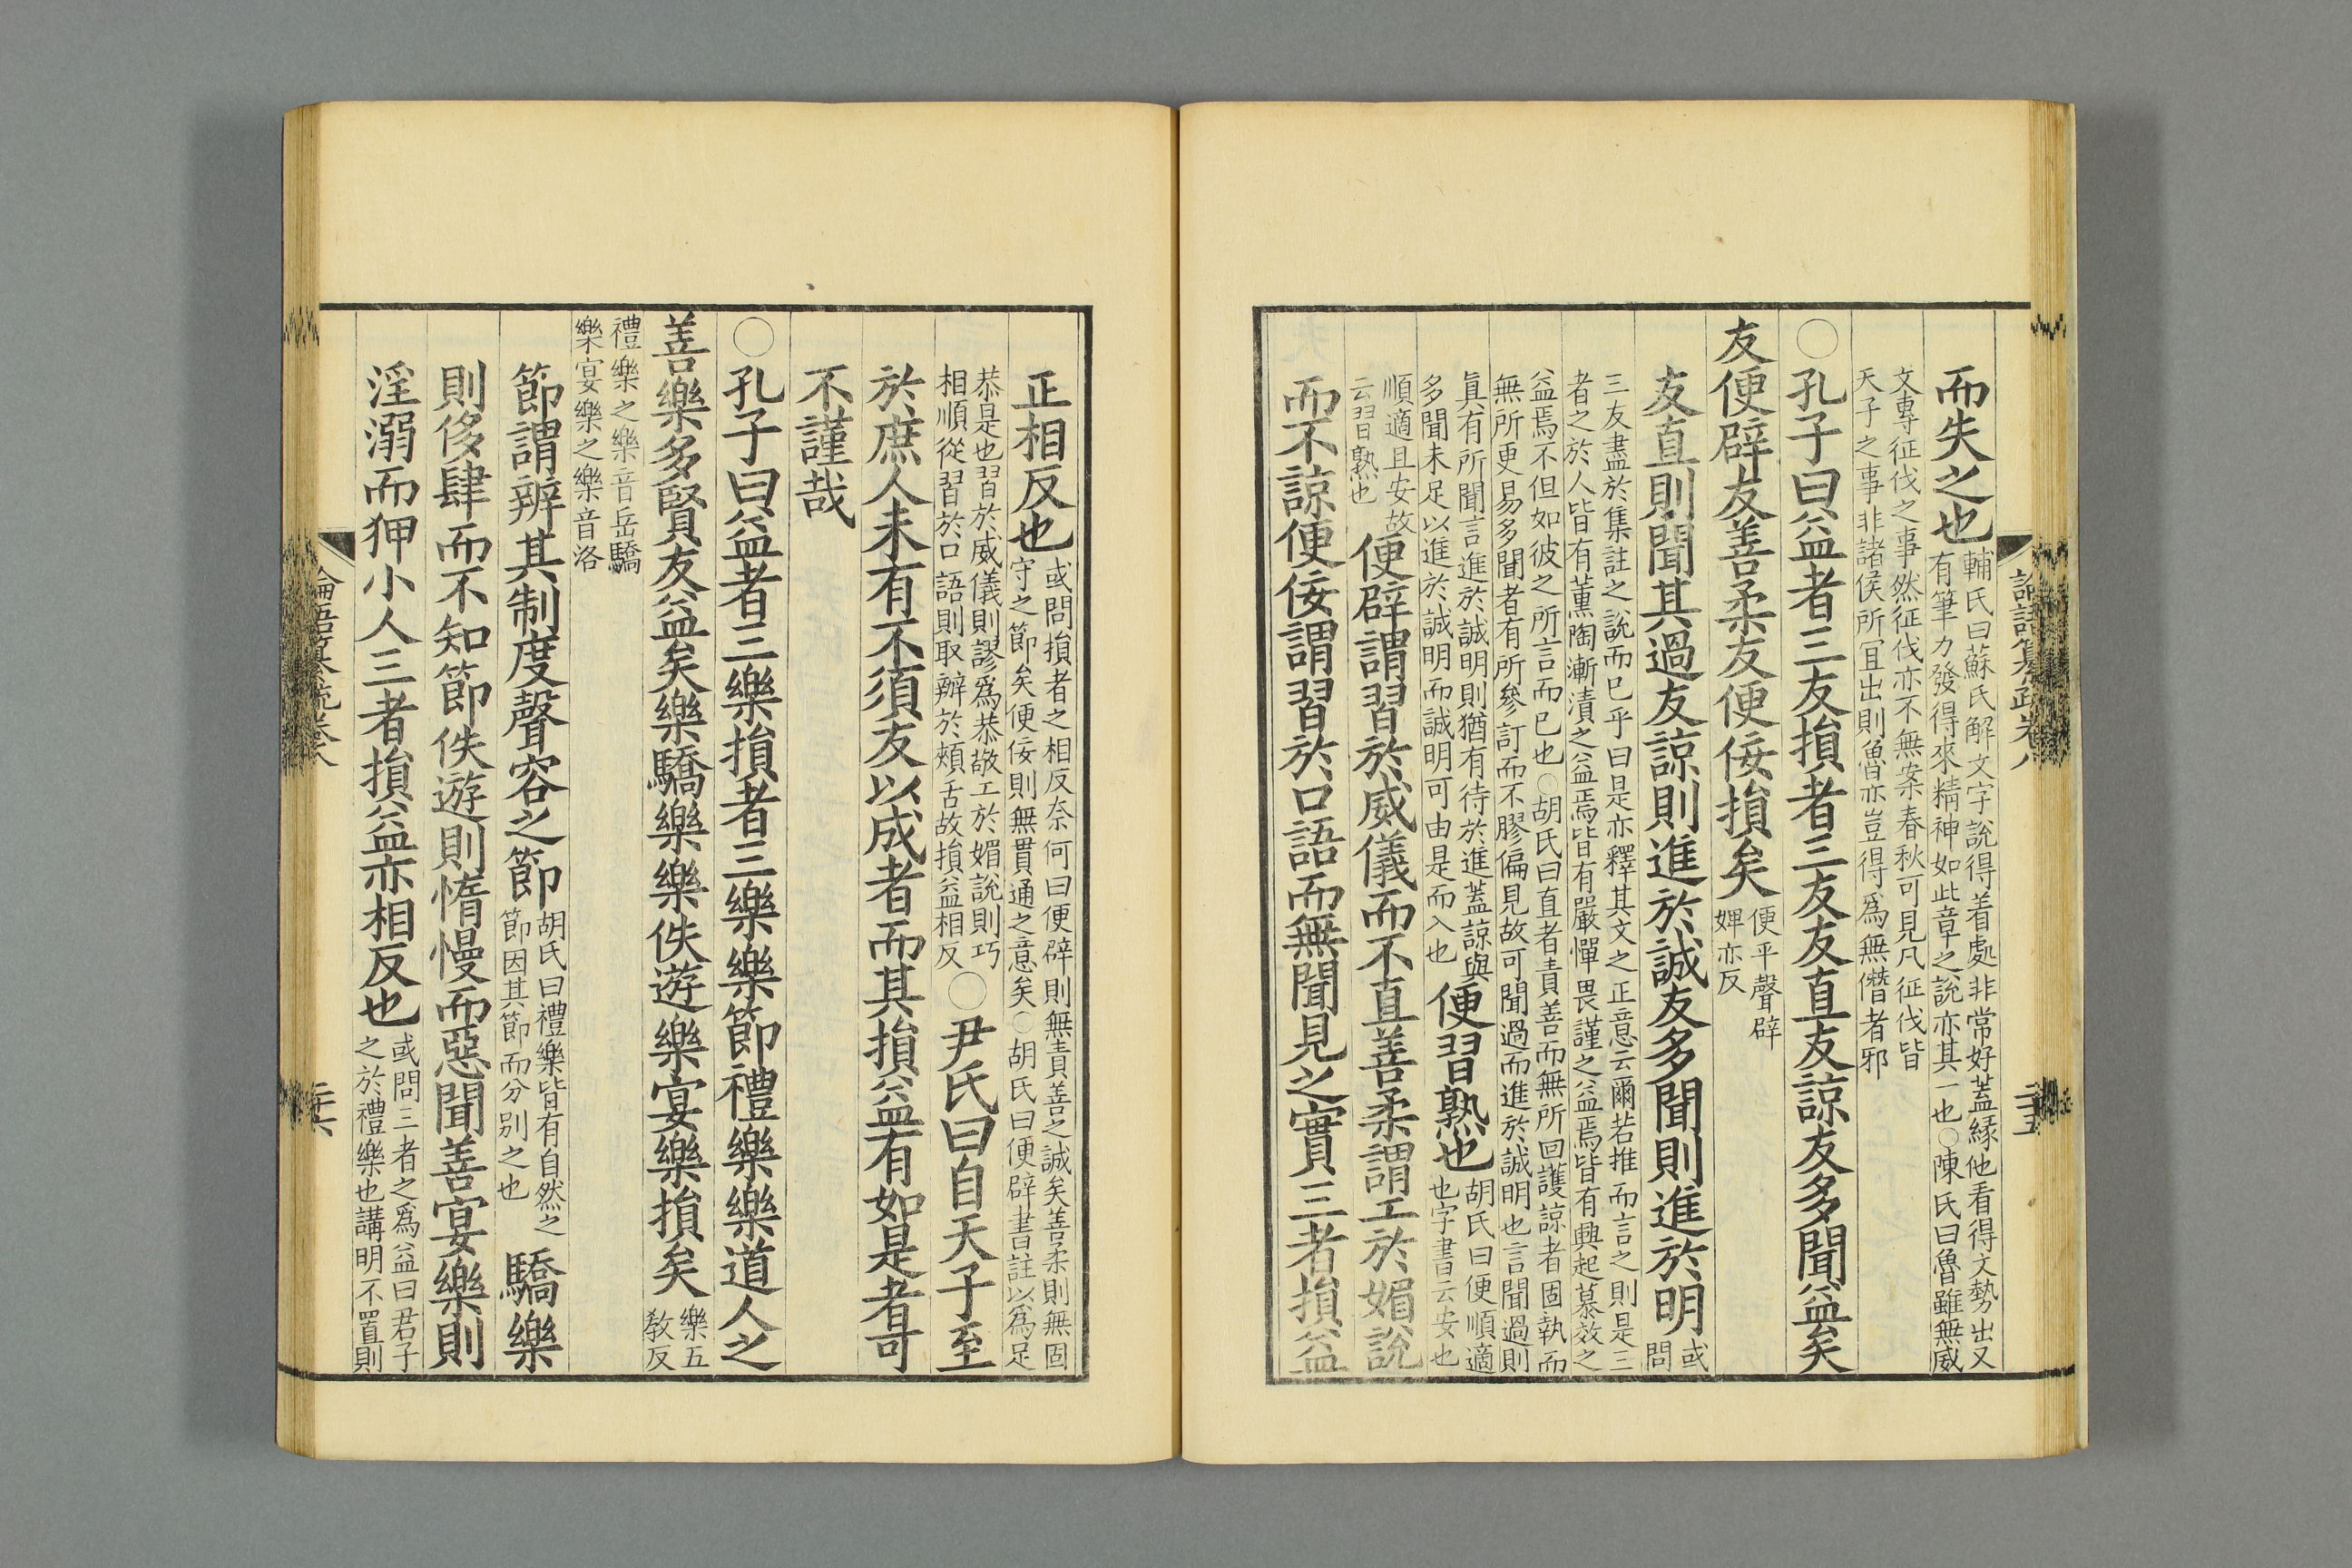 而失之也輔氏曰蘇氏解文字說得着處非常好蓋緣他看得文勢出又
有筆力發得來精神如此章之說亦其一也○陳氏曰魯雖無威
文專征伐之事然征伐亦不無案春秋可見凡征伐皆
天子之事非諸侯所冝出則魯亦豈得爲無僭者邪
○孔子曰益者三友損者三友友直友諒友多聞益矣
友便辟友善柔友便佞損矣便平聲辟
婢亦反
友直則聞其過友諒則進於誠友多聞則進於明或
問
三友盡於集註之說而已乎曰是亦釋其文之正意云爾若推而言之則是三
者之於人皆有薰陶漸漬之益焉皆有嚴憚畏謹之益焉皆有興起慕效之
益焉不但如彼之所言而已也○胡氏曰直者責善而無所回護諒者固執而
無所更易多聞者有所參訂而不膠偏見故可聞過而進於誠明也言聞過則
眞有所聞言進於誠明則猶有待於進蓋諒與
多聞未足以進於誠明而誠明可由是而入也
便習熟也胡氏曰便順適
也字書云安也
順適且安故
云習熟也
便辟謂習於威儀而不直善柔謂工於媚說
而不諒便佞謂習於口語而無聞見之實三者損益
論語纂疏卷八
二十五
正相反也或問損者之相反奈何曰便辟則無責善之誠矣善柔則無固
守之節矣便佞則無貫通之意矣○胡氏曰便辟書註以爲足
恭是也習於威儀則謬爲恭敬工於媚說則巧
相順從習於口語則取辨於頰舌故損益相反
○尹氏曰自天子至
於庶人未有不須友以成者而其損益有如是者可
不謹哉
○孔子曰益者三樂損者三樂樂節禮樂樂道人之
善樂多賢友益矣樂驕樂樂佚遊樂宴樂損矣樂五
敎反
禮樂之樂音岳驕
樂宴樂之樂音洛
節謂辨其制度聲容之節胡氏曰禮樂皆有自然之
節因其節而分別之也
驕樂
則侈肆而不知節佚遊則惰慢而惡聞善宴樂則
淫溺而狎小人三者損益亦相反也或問三者之爲益曰君子
之於禮樂也講明不置則
論語纂疏卷八
二十六